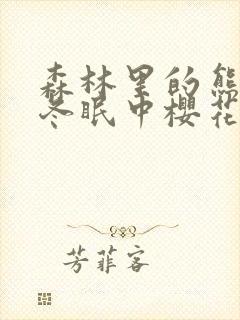 森林里的熊
冬眠中樱花
芳菲客